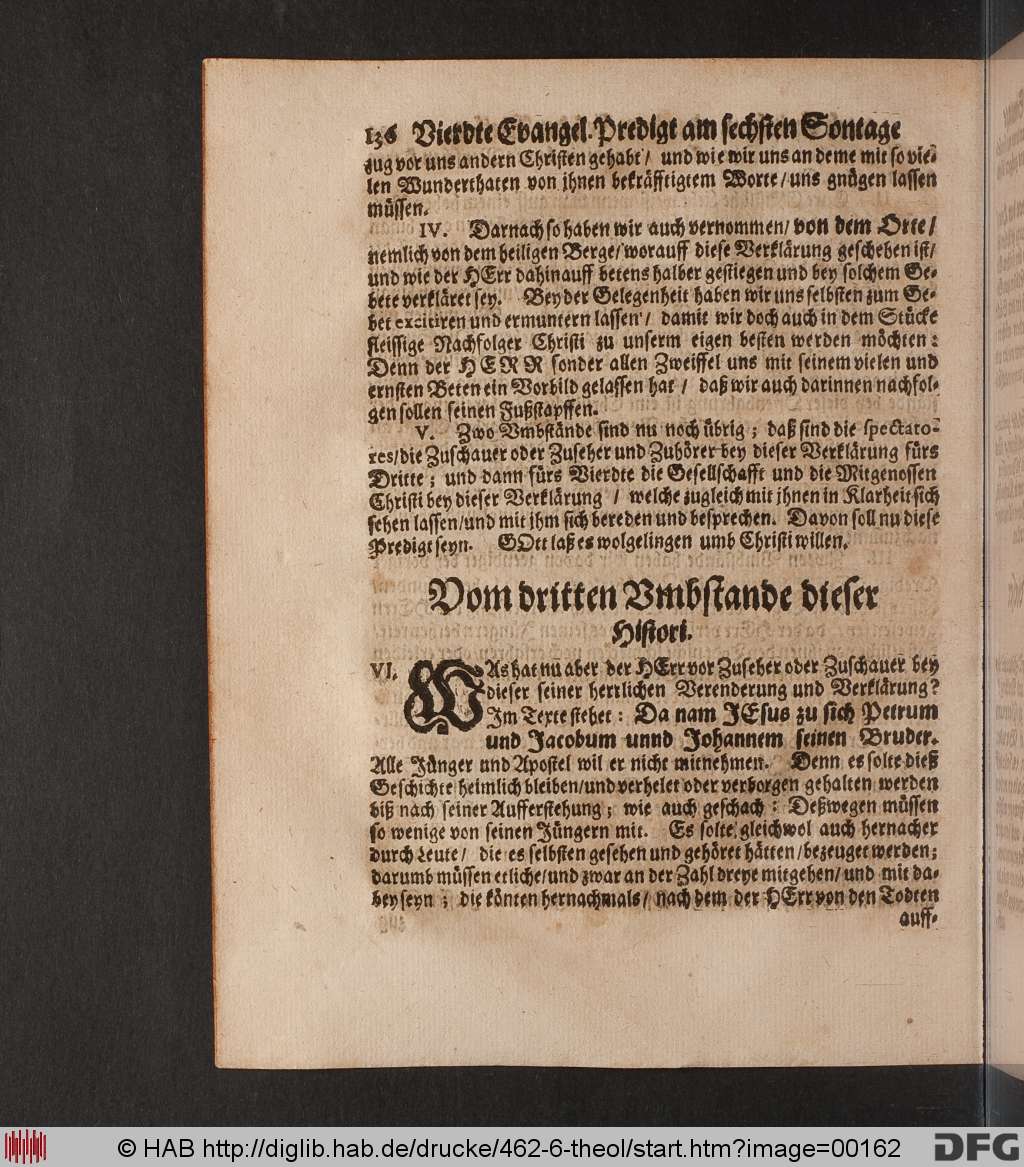 136 Vierdte Evangel. Predigt am sechsten Sontage
zug vor uns andern Christen gehabt / und wie wir uns an deme mit so vie-
len Wunderthaten von jhnen bekräfftigtem Worte / uns gnügen lassen
müssen.
IV. Darnach so haben wir auch vernommen / von dem Orte /
nemlich von dem heiligen Berge / worauff diese Verklärung geschehen ist /
und wie der HErr dahinauff betens halber gestiegen und bey solchem Ge-
bete verkläret sey. Bey der Gelegenheit haben wir uns selbsten zum Ge-
bet excitiren und ermuntern lassen / damit wir doch auch in dem Stücke
fleissige Nachfolger Christi zu unserm eigen besten werden möchten :
Denn der HERR sonder allen Zweiffel uns mit seinem vielen und
ernsten Beten ein Vorbild gelassen hat / daß wir auch darinnen nachfol-
gen sollen seinen Fußstapffen.
V. Zwo Vmbstände sind nu noch übrig ; daß sind die spectato-
res / die Zuschauer oder Zuseher und Zuhörer bey dieser Verklärung fürs
Dritte ; und dann fürs Vierdte die Gesellschafft und die Mitgenossen
Christi bey dieser Verklärung / welche zugleich mit jhnen in Klarheit sich
sehen lassen / und mit jhm sich bereden und besprechen. Davon soll nu diese
Predigt seyn. GOtt laß es wolgelingen umb Christi willen.
Vom dritten Vmbstande dieser
Histori.
VI. WAs hat nu aber der HErr vor Zuseher oder Zuschauer bey
dieser seiner herrlichen Verenderung und Verklärung?
Im Texte stehet : Da nam JEsus zu sich Petrum
und Jacobum unnd Johannem seinen Bruder.
Alle Jünger und Apostel wil er nicht mitnehmen. Denn es solte dieß
Geschichte heimlich bleiben / und verhelet oder verborgen gehalten werden
biß nach seiner Aufferstehung ; wie auch geschach : Deßwegen müssen
so wenige von seinen Jüngern mit. Es solte gleichwol auch hernacher
durch Leute / die es selbsten gesehen und gehöret hätten / bezeuget werden ;
darumb müssen etliche / und zwar an der Zahl dreye mitgehen / und mit da-
bey seyn ; die könten hernachmals / nach dem der HErr von den Todten
auff-
© HAB http://diglib.hab.de/drucke/462-6-theol/start.htm?image=00162
DFG